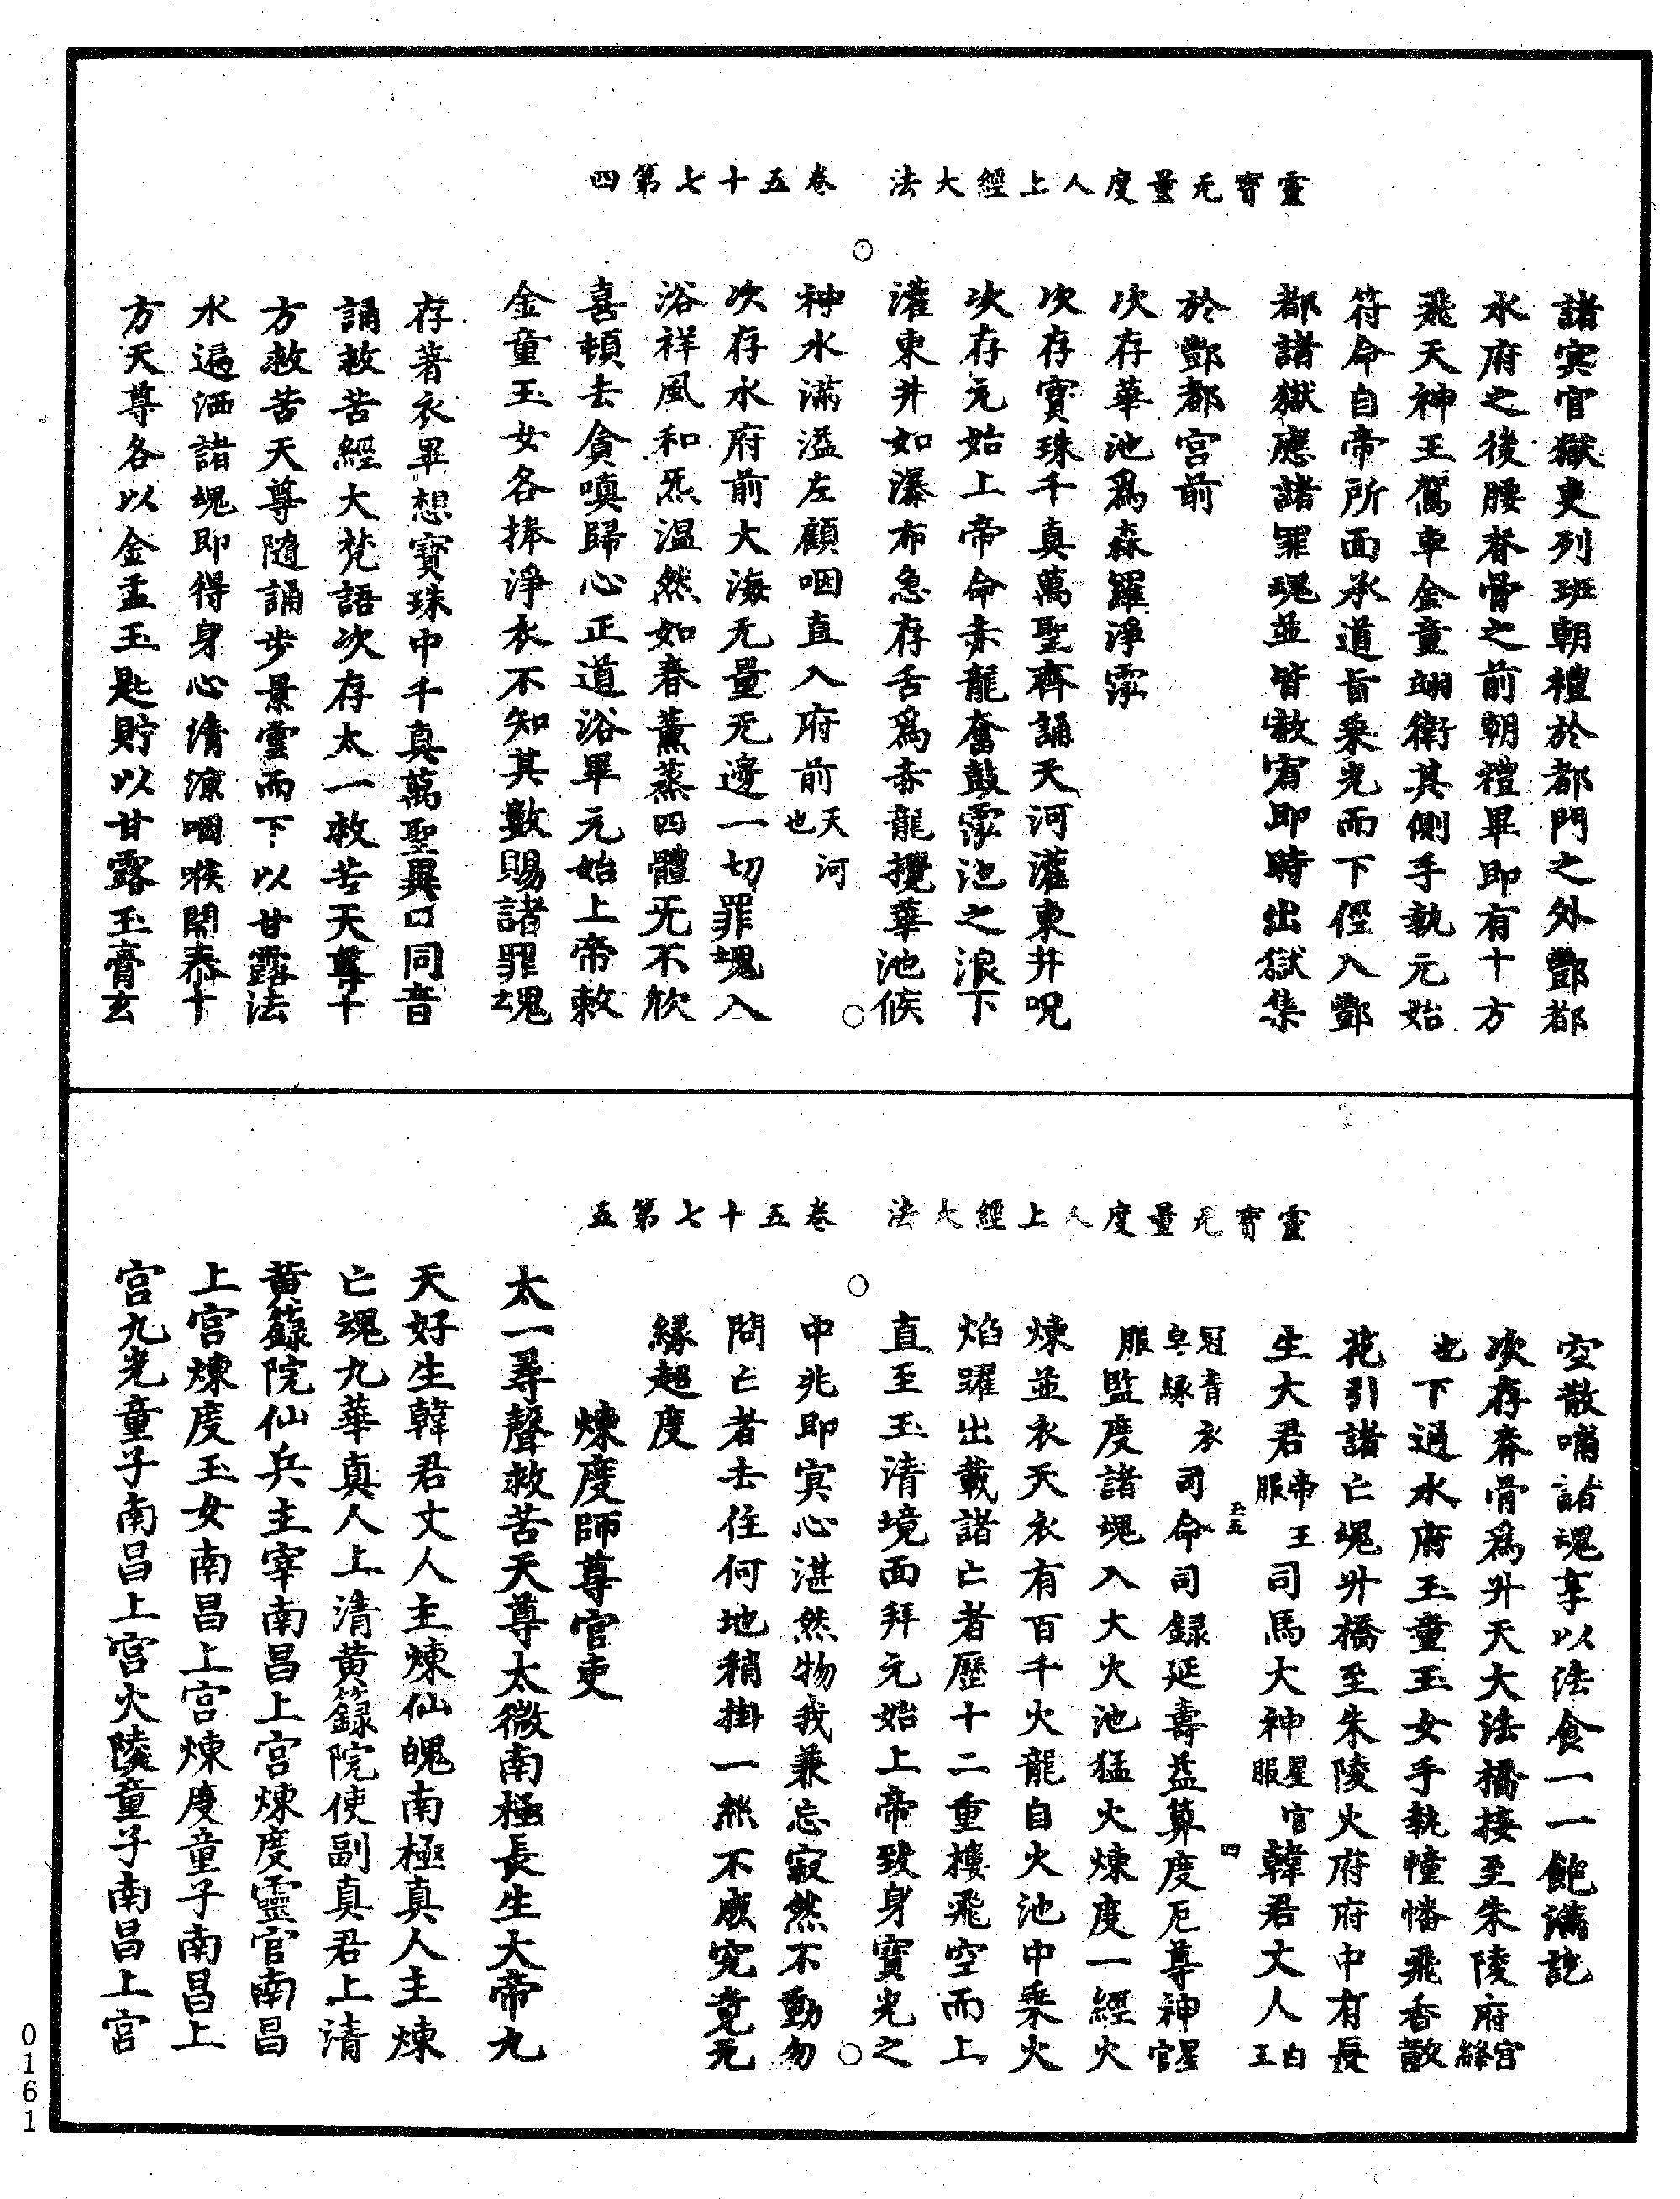 靈寶无量度人上經大法　卷五十七第四
諸㝠官獄吏列班朝禮於都門之外酆都
水府之後腰脊骨之前朝禮畢即有十方
飛天神王駕車金童翊衛其側手執元始
符命自帝所面承道旨乘光而下徑入酆
都諸獄應諸罪魂並皆赦宥即時出獄集
於酆都宮前
次存華池為森羅淨霐
次存寶珠千真萬聖齊誦天河灌東井呪
次存元始上帝命赤龍奮鼓霐池之浪下
灌東井如瀑布急存舌為赤龍攪華池候
神水滿溢左顧咽直入府前天河也
次存水府前大海无量无邊一切罪魂入
浴祥風和炁温然如春薰蒸四體无不欣
喜頓去貪嗔歸心正道浴畢元始上帝敕
金童玉女各捧淨衣不知其數賜諸罪魂
存著衣畢想寶珠中千真萬聖異口同音
誦救苦經大梵語次存太一救苦天尊十
方救苦天尊隨誦步景雲而下以甘露法
水遍洒諸魂即得身心清涼咽喉開泰十
方天尊各以金盂玉匙貯以甘露玉膏玄
靈寶无量度人上經大法　卷五十七第五
空散哺諸魂享以法食一一飽滿訖
次存脊骨為升天大法橋接至朱陵府絳宮
也下通水府玉童玉女手執幢幡飛香散
花引諸亡魂升橋至朱陵火府府中有長
生大君帝王服司馬大神星官服韓君丈人白玉
冠青衣皂緣服司命司録延壽益算度厄尊神星官
服監度諸魂入大火池猛火煉度一經火
煉並衣天衣有百千火龍自火池中乘火
焰躍出載諸亡者歷十二重樓飛空而上
直至玉清境面拜元始上帝致身寶光之
中兆即㝠心湛然物我兼忘寂然不動勿
問亡者去住何地稍掛一絲不成究竟无
緣超度
煉度師尊官吏
太一尋聲救苦天尊太微南極長生大帝九
天好生韓君丈人主煉仙魄南極真人主煉
亡魂九華真人上清黃籙院使副真君上清
黃籙院仙兵主宰南昌上宮煉度靈官南昌
上宮煉度玉女南昌上宮煉度童子南昌上
宮九光童子南昌上宮火陵童子南昌上宮
玉五
四
0161